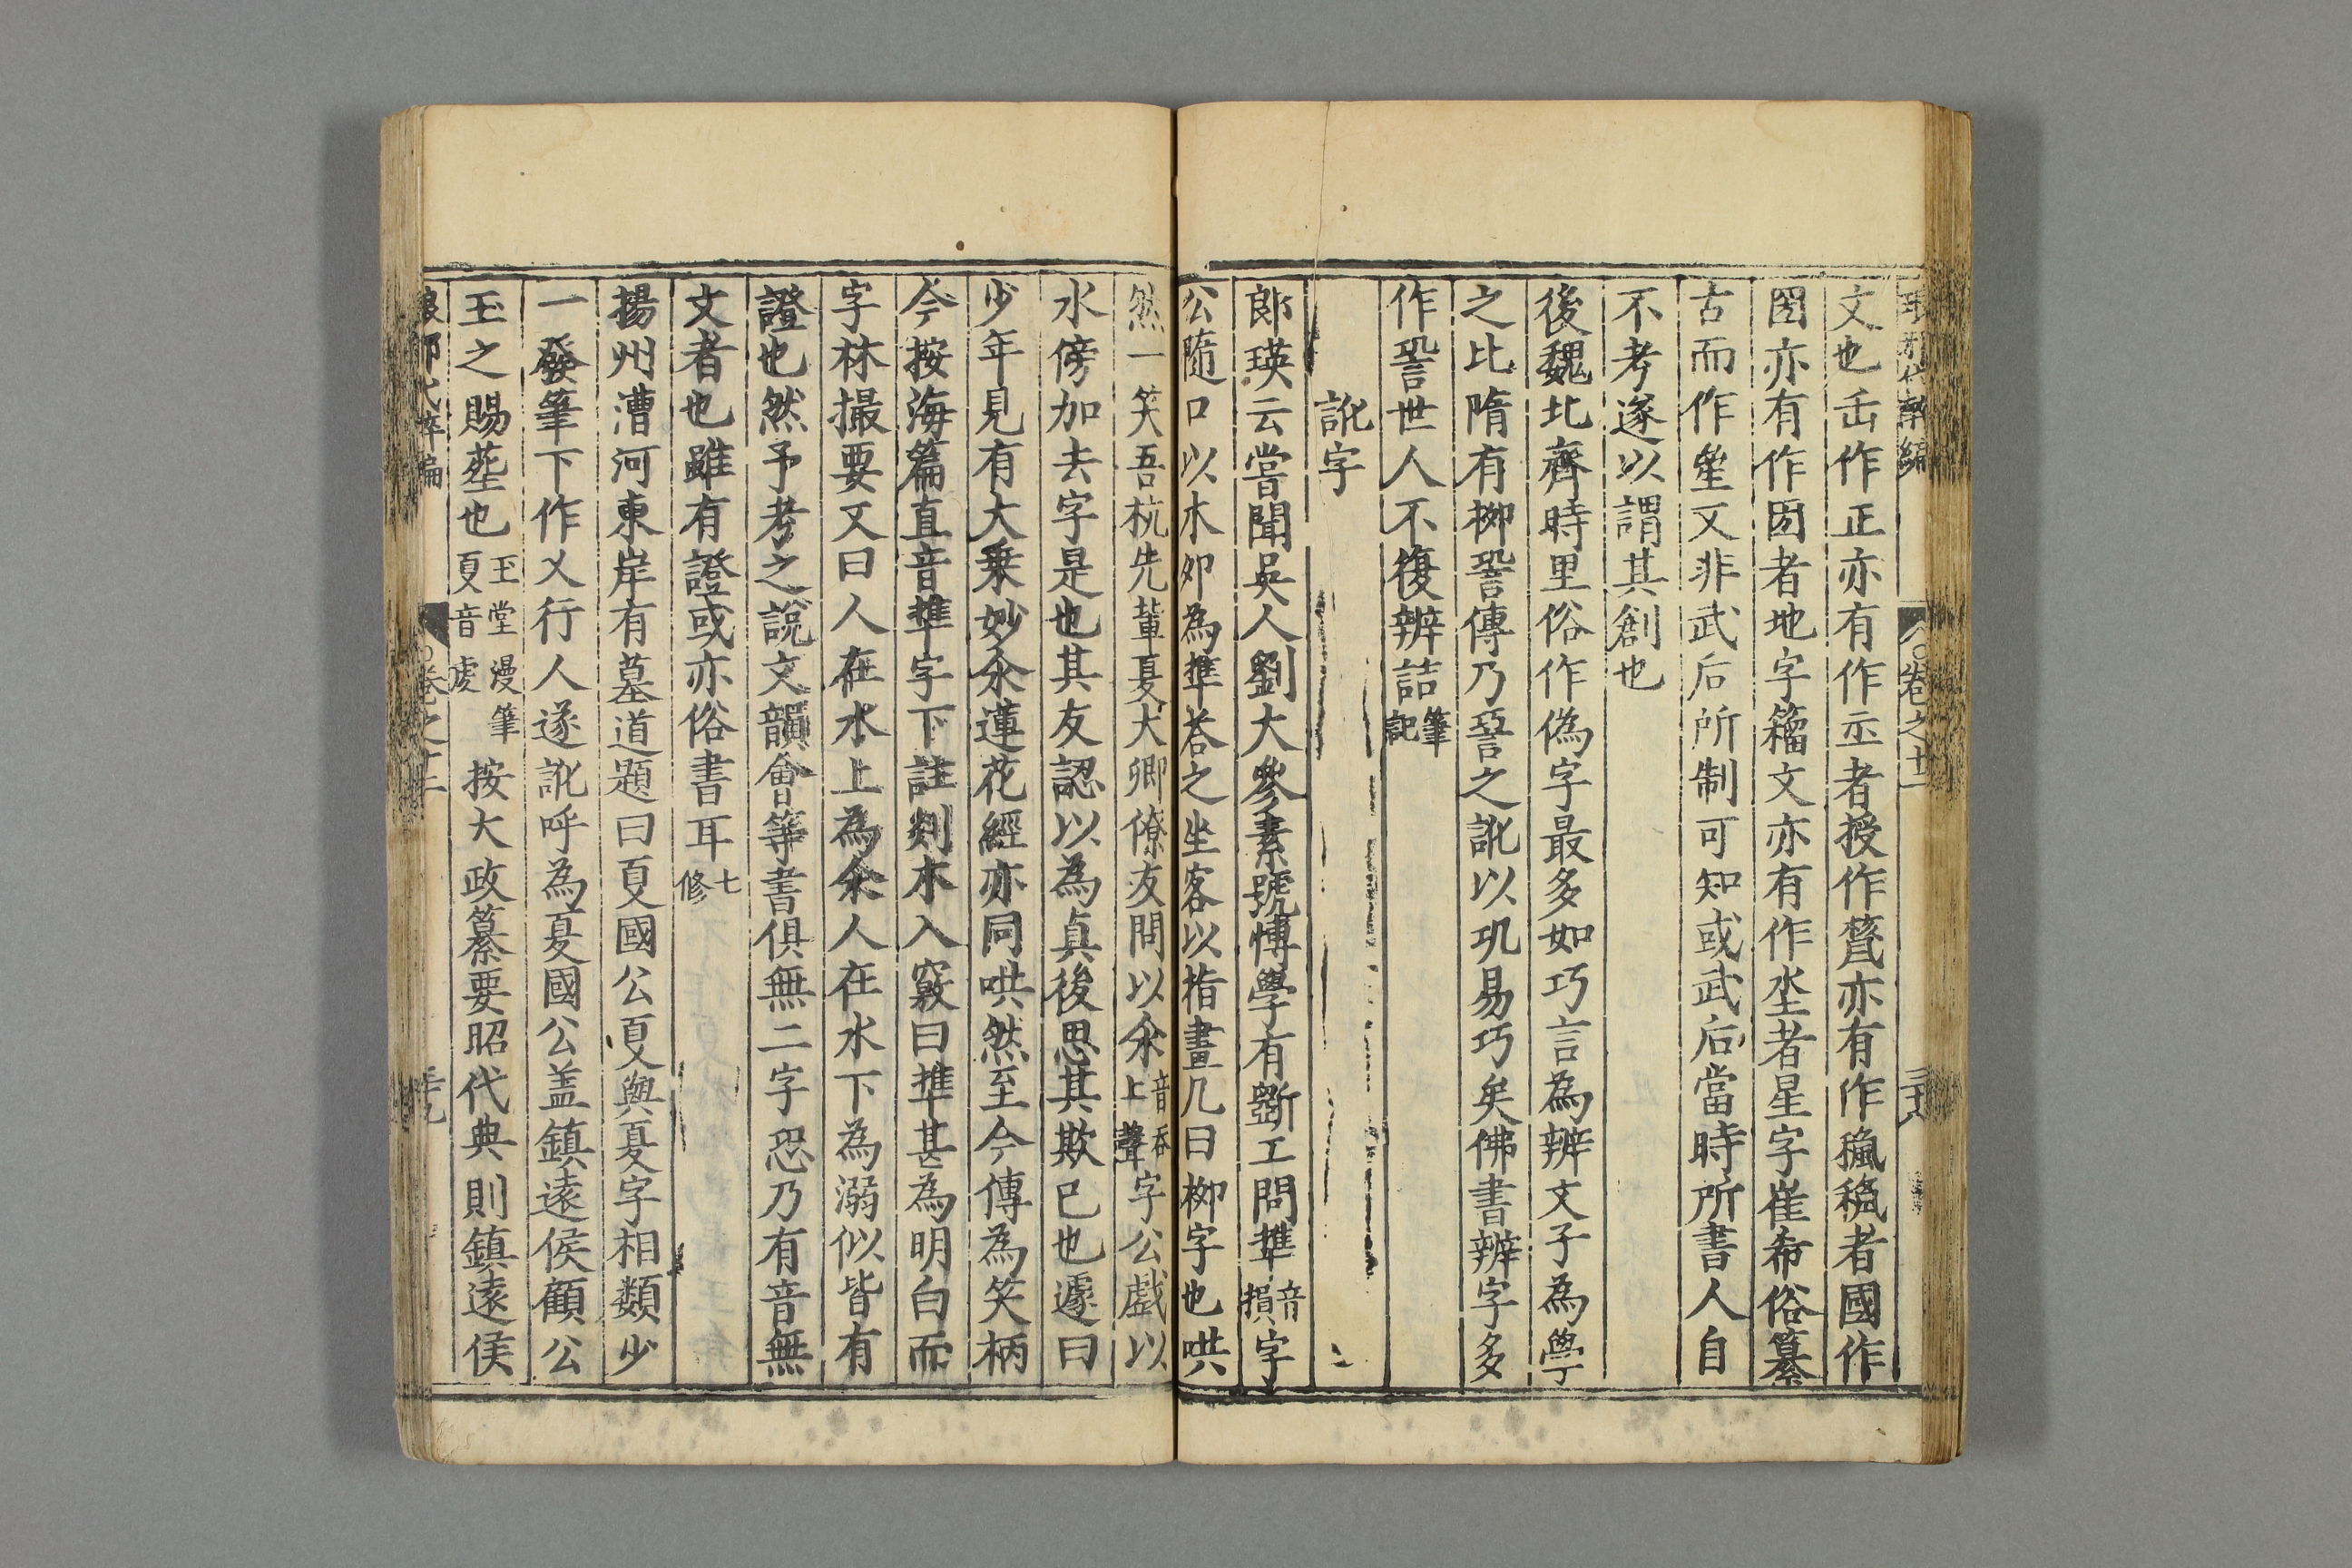 琅邪代醉編 卷之十二 三十八
文也缶作正亦有作𠙺者授作𥡴亦有作穐穐者國作
圀亦有作囡者地字籀文亦有作埊者星字崔希裕纂
古而作𤯔又非武后所制可知或武后當時所書人自
不考遂以謂其創也
後魏北齊時里俗作偽字最多如巧言為辨文子為學
之比隋有栁䛒傳乃䛒之訛以巩易巧矣佛書辨字多
作䛒世人不復辨詰筆記
訛字
郎瑛云嘗聞吳人劉大參素號博學有斵工問㨔音損字
公隨口以木卯為㨔荅之坐客以指畫几曰栁字也哄
然一笑吾杭先輩夏大卿僚友問以氽音吞上聲字公戯以
水傍加去字是也其友認以為真後思其欺已也遽曰
少年見有大乗妙氽蓮花經亦同哄然至今傳為笑柄
今按海篇直音㨔字下註剡木入竅曰㨔甚為明白而
字林撮要又曰人在水上為氽人在水下為溺似皆有
證也然予考之說文韻會等書俱無二字恐乃有音無
文者也雖有證或亦俗書耳七修
揚州漕河東岸有墓道題曰𡕾國公𡕾與夏字相類少
一發筆下作乂行人遂訛呼為夏國公盖鎮遠侯顧公
玉之賜塟也玉堂漫筆𡕾音虔按大政纂要昭代典則鎮遠侯
琅邪代醉編 卷之十二 三十九